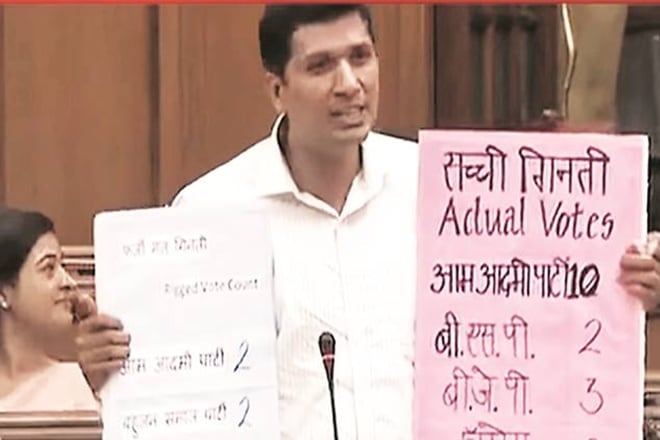 फर्जी मत गिनती
Rigged Vote Count
आम आदमी पार्टी 2
बहुजन समाज पार्टी 2
सच्ची गिनती
Actual Votes
आम आदमी पार्टी 10
बी.एस.पी. 2
बी.जे.पी. 3